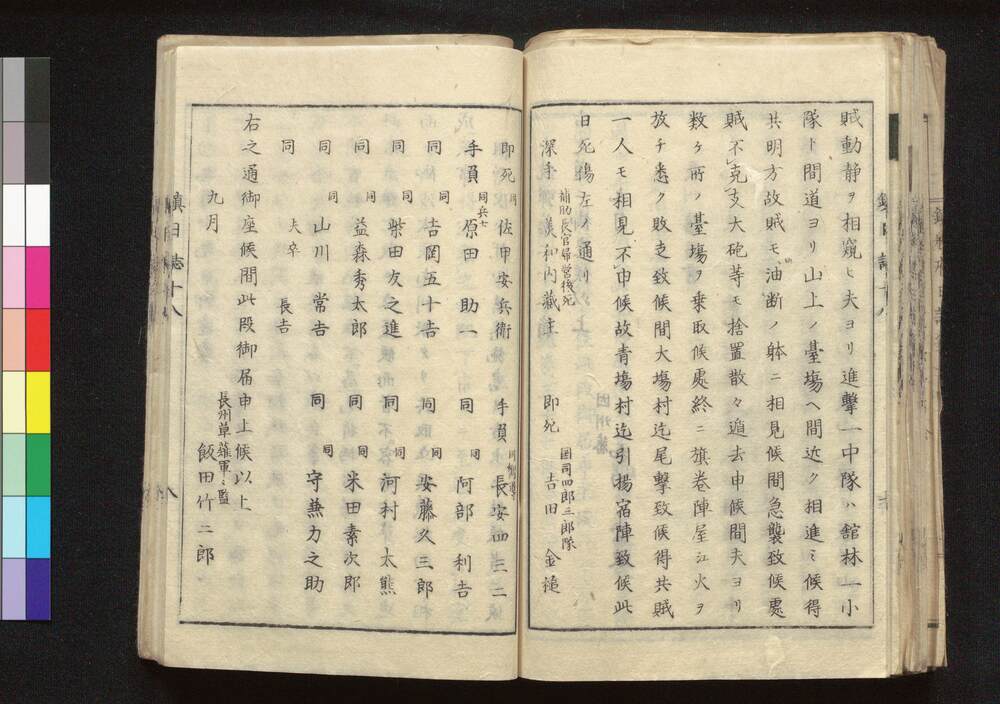 賊動静ヲ相窺ヒ夫ヨリ進撃一中隊ハ舘林一小
隊ト間道ヨリ山上ノ臺塲ヘ間近ク相進ミ候得
共明方故賊モ油断ノ躰ニ相見候間急襲致候處
賊不克支大砲等モ捨置散々遁去申候間夫ヨリ
数ケ所ノ臺塲ヲ乗取候處終ニ旗巻陣屋江火ヲ
放チ悉ク敗走致候間大塲村迄尾撃致候得共賊
一人モ相見不申候故青塲村迄引揚宿陣致候此
日死傷左ノ通リ
補助長官帰営後死
深手 内藏主
国司四郎三郎隊
即死 吉田金槌
同
即死 佐甲安兵衛
手負 長安四三二
同兵士
手負 原田助一
同
同 阿部利吉
同
同 吉岡五十吉
同
同 安藤久三郎
同
同 柴田友之進
同
同 河村太熊
同
同 益森秀太郎
同
同 米田素次郎
同
同 山川常吉
同
同 守兼力之助
夫卒
同 長吉
右之通御座候間此段御届申上候以上
九月
長州
飯田竹二郎
鎮日誌十八
八